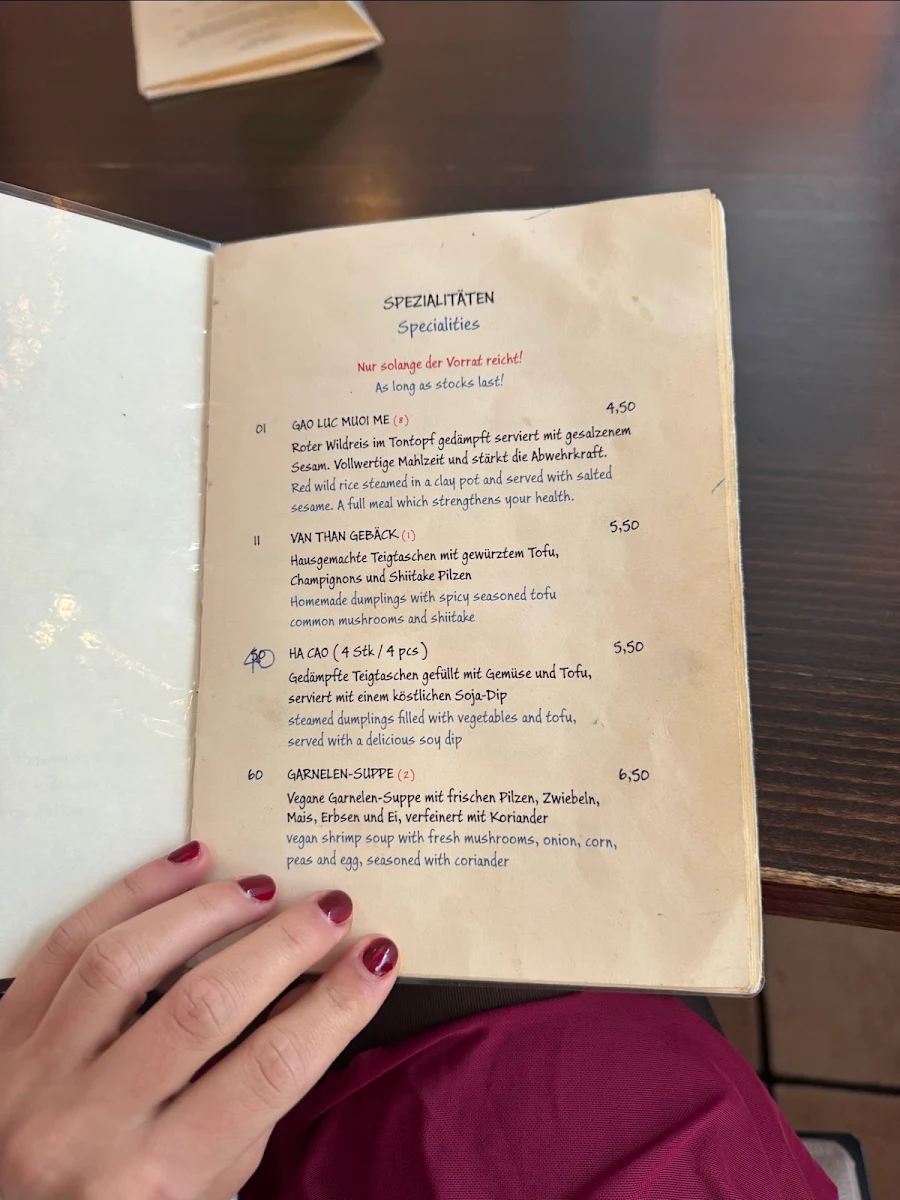 SPEZIALITÄTEN
Specialities
Nur solange der Vorrat reicht!
As long as stocks last!
01 GAO LUC MUOI ME (8) 4,50
Roter Wildreis im Tontopf gedämpft serviert mit gesalzenem
Sesam. Vollwertige Mahlzeit und stärkt die Abwehrkraft.
Red wild rice steamed in a clay pot and served with salted
sesame. A full meal which strengthens your health.
11 VAN THAN GEBÄCK (1) 5,50
Hausgemachte Teigtaschen mit gewürztem Tofu,
Champignons und Shiitake Pilzen
Homemade dumplings with spicy seasoned tofu
common mushrooms and shiitake
40 HA CAO ( 4 Stk / 4 pcs ) 5,50
Gedämpfte Teigtaschen gefüllt mit Gemüse und Tofu,
serviert mit einem köstlichen Soja-Dip
steamed dumplings filled with vegetables and tofu,
served with a delicious soy dip
60 GARNELEN-SUPPE (2) 6,50
Vegane Garnelen-Suppe mit frischen Pilzen, Zwiebeln,
Mais, Erbsen und Ei, verfeinert mit Koriander
vegan shrimp soup with fresh mushrooms, onion, corn,
peas and egg, seasoned with coriander